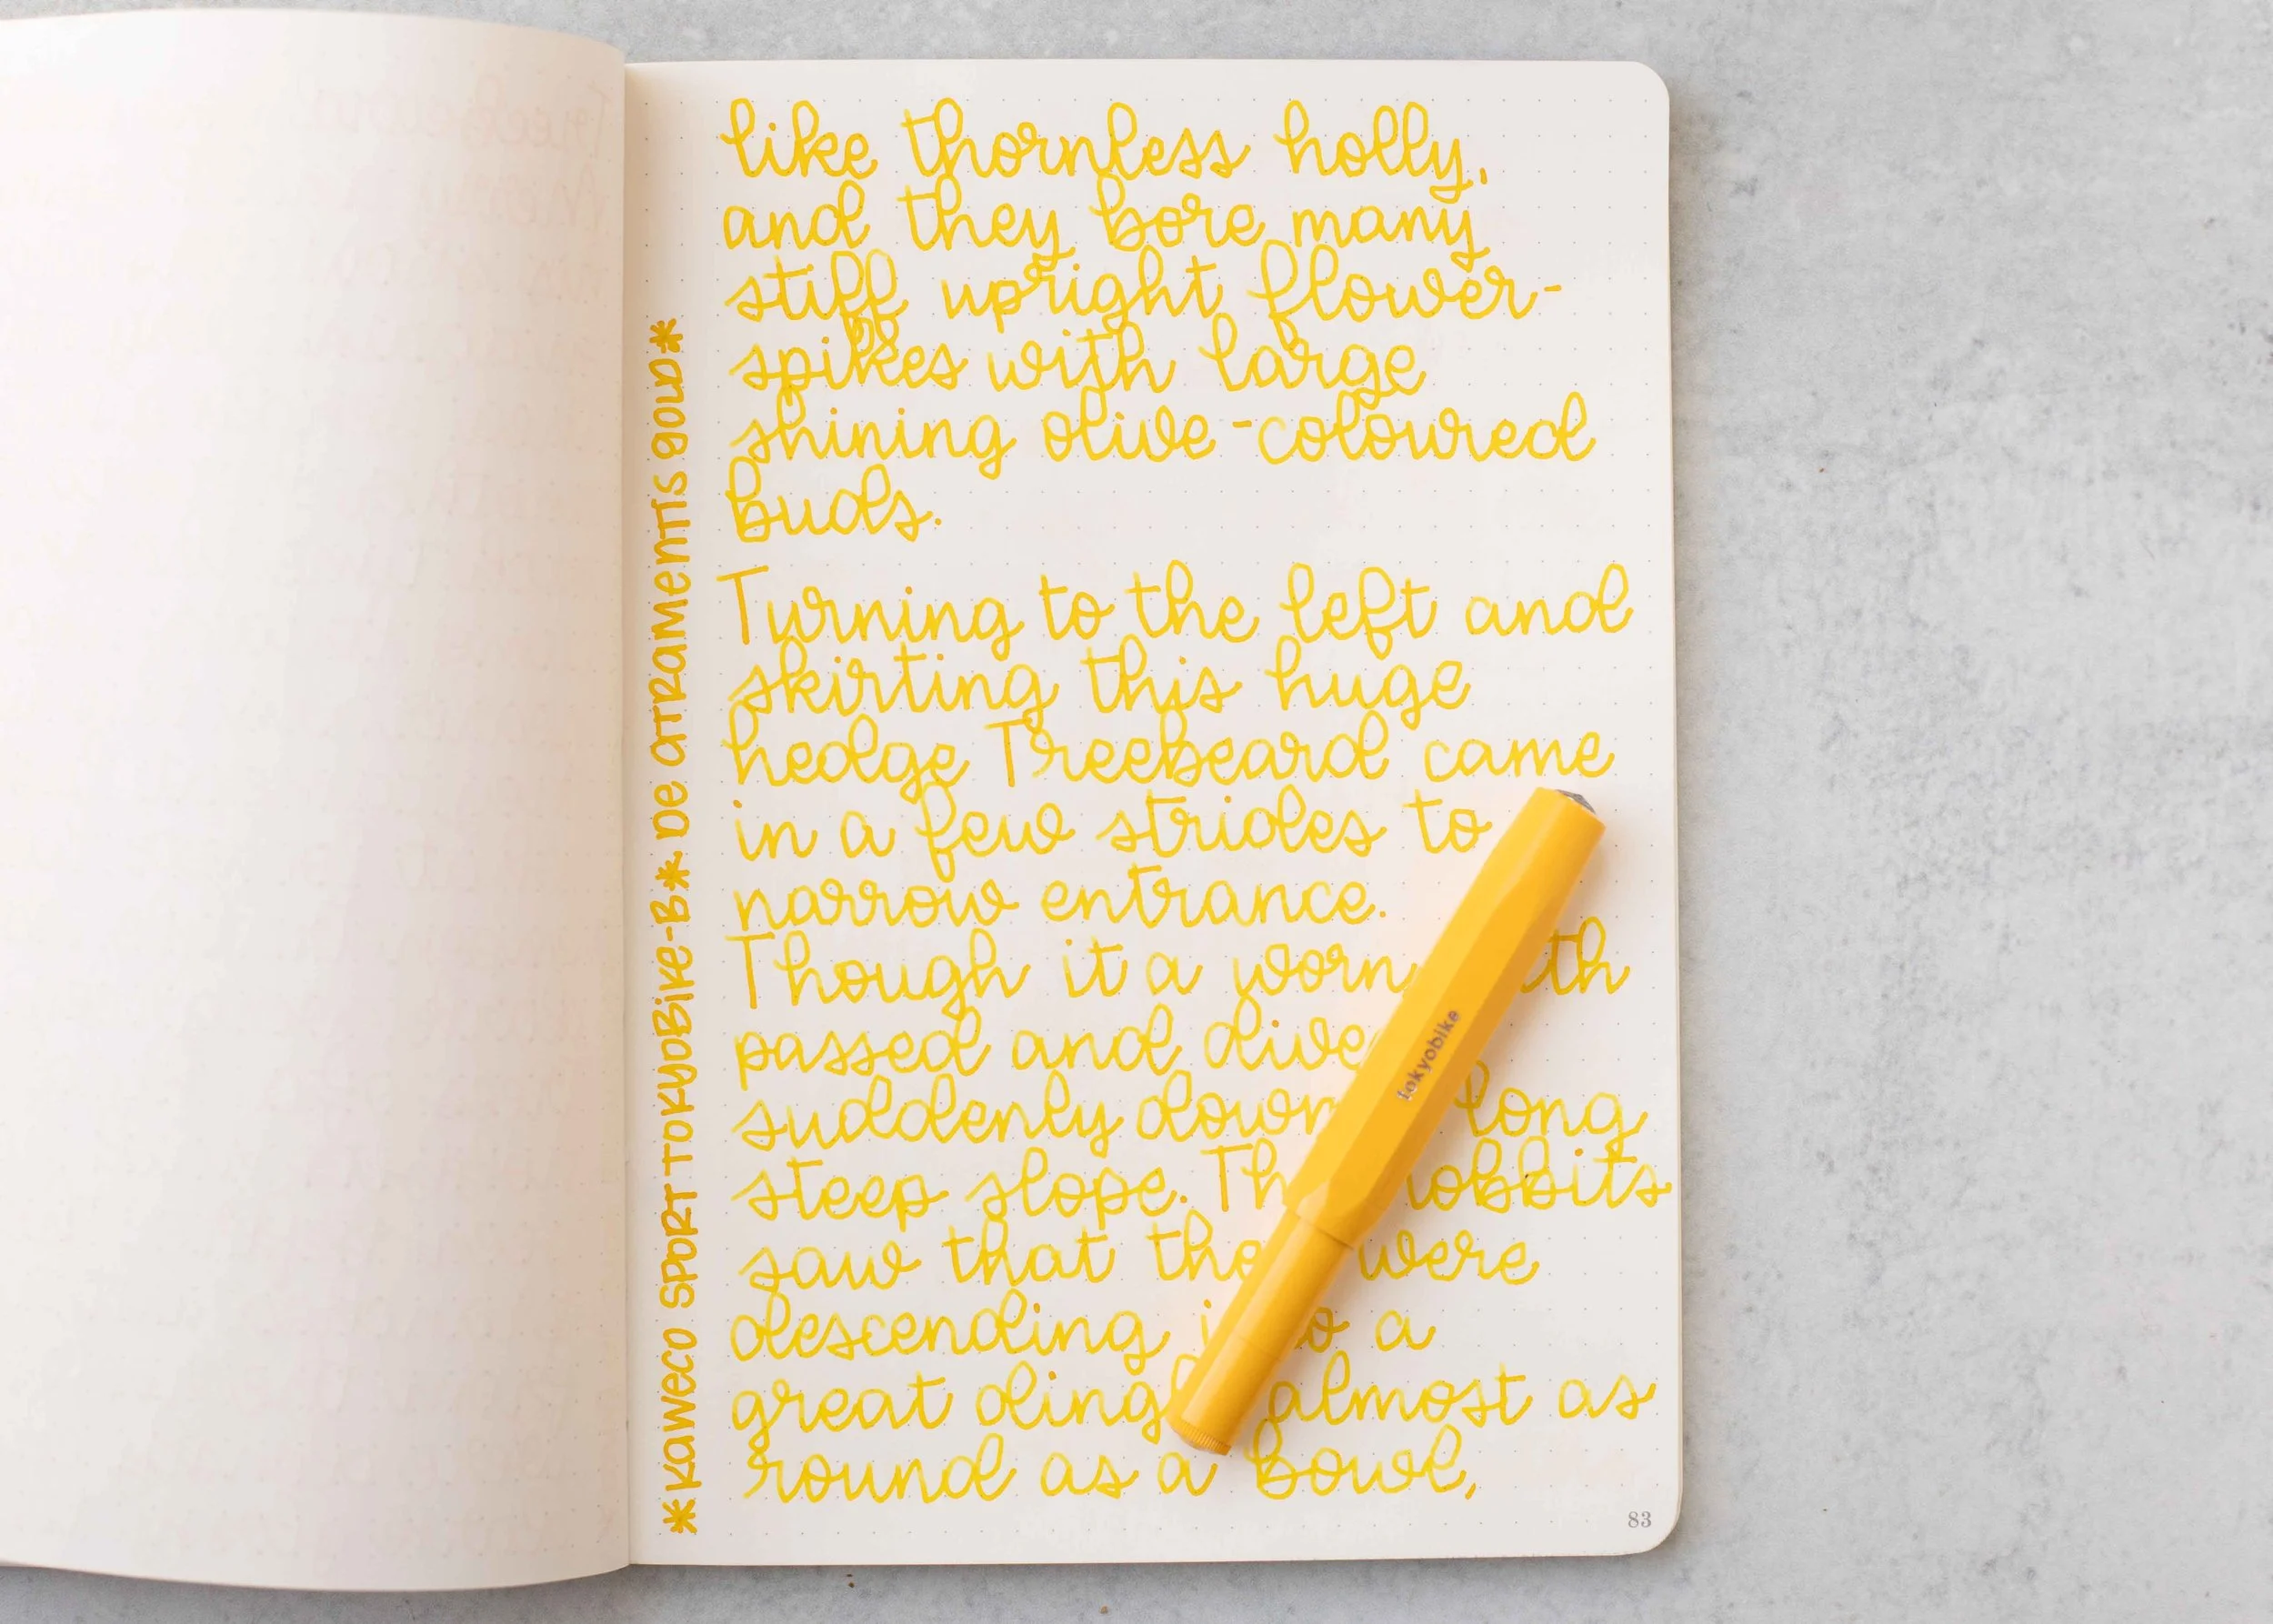 like thornless holly,
and they bore many
stiff upright flower-
spikes with large
shining olive-coloured
buds.
Turning to the left and
skirting this huge
hedge Treebeard came
in a few strides to
narrow entrance.
Though it a worn
passed and
suddenly down long
steep slope.
saw that were
descending a
great almost as
round as a bowl,
*KAWECO SPORT TOKYOBIKE-B* DE ATRAMENTIS GOLD*
tokyobike
83